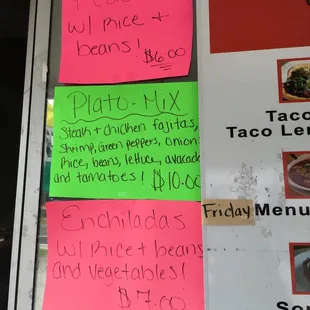 w/ Rice +
beans!
$6.00
Plato-Mix
Steak + chicken fajitas,
Shrimp, Green peppers, onion
Rice, beans, lettuce, avacado
and tamatoes! $10.00
Enchiladas
w/ Rice + beans
and vegetables!
$7.00
Taco
Taco Len
Friday Menu
So